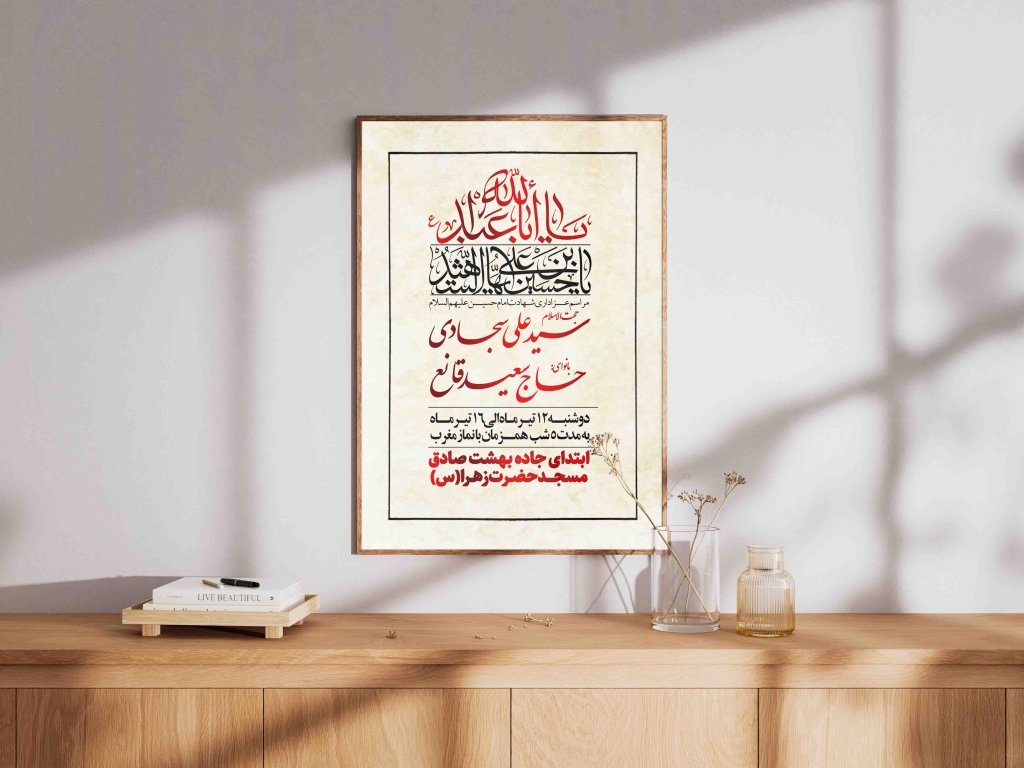 یا أباعبدالله ع
یاحسین بن علی ایها الشهید
مراسم عزاداری شهادت امام حسین علیهم السلام
حجت الاسلام
سید علی سجادی
بانوای:
حاج سعید قانع
دوشنبه ۱۲ تیر ماه الی ۱۶ تیر ماه
به مدت ۵ شب همزمان با نماز مغرب
ابتدای جاده بهشت صادق
مسجد حضرت زهرا(س)
LIVE BEAUTIFUL